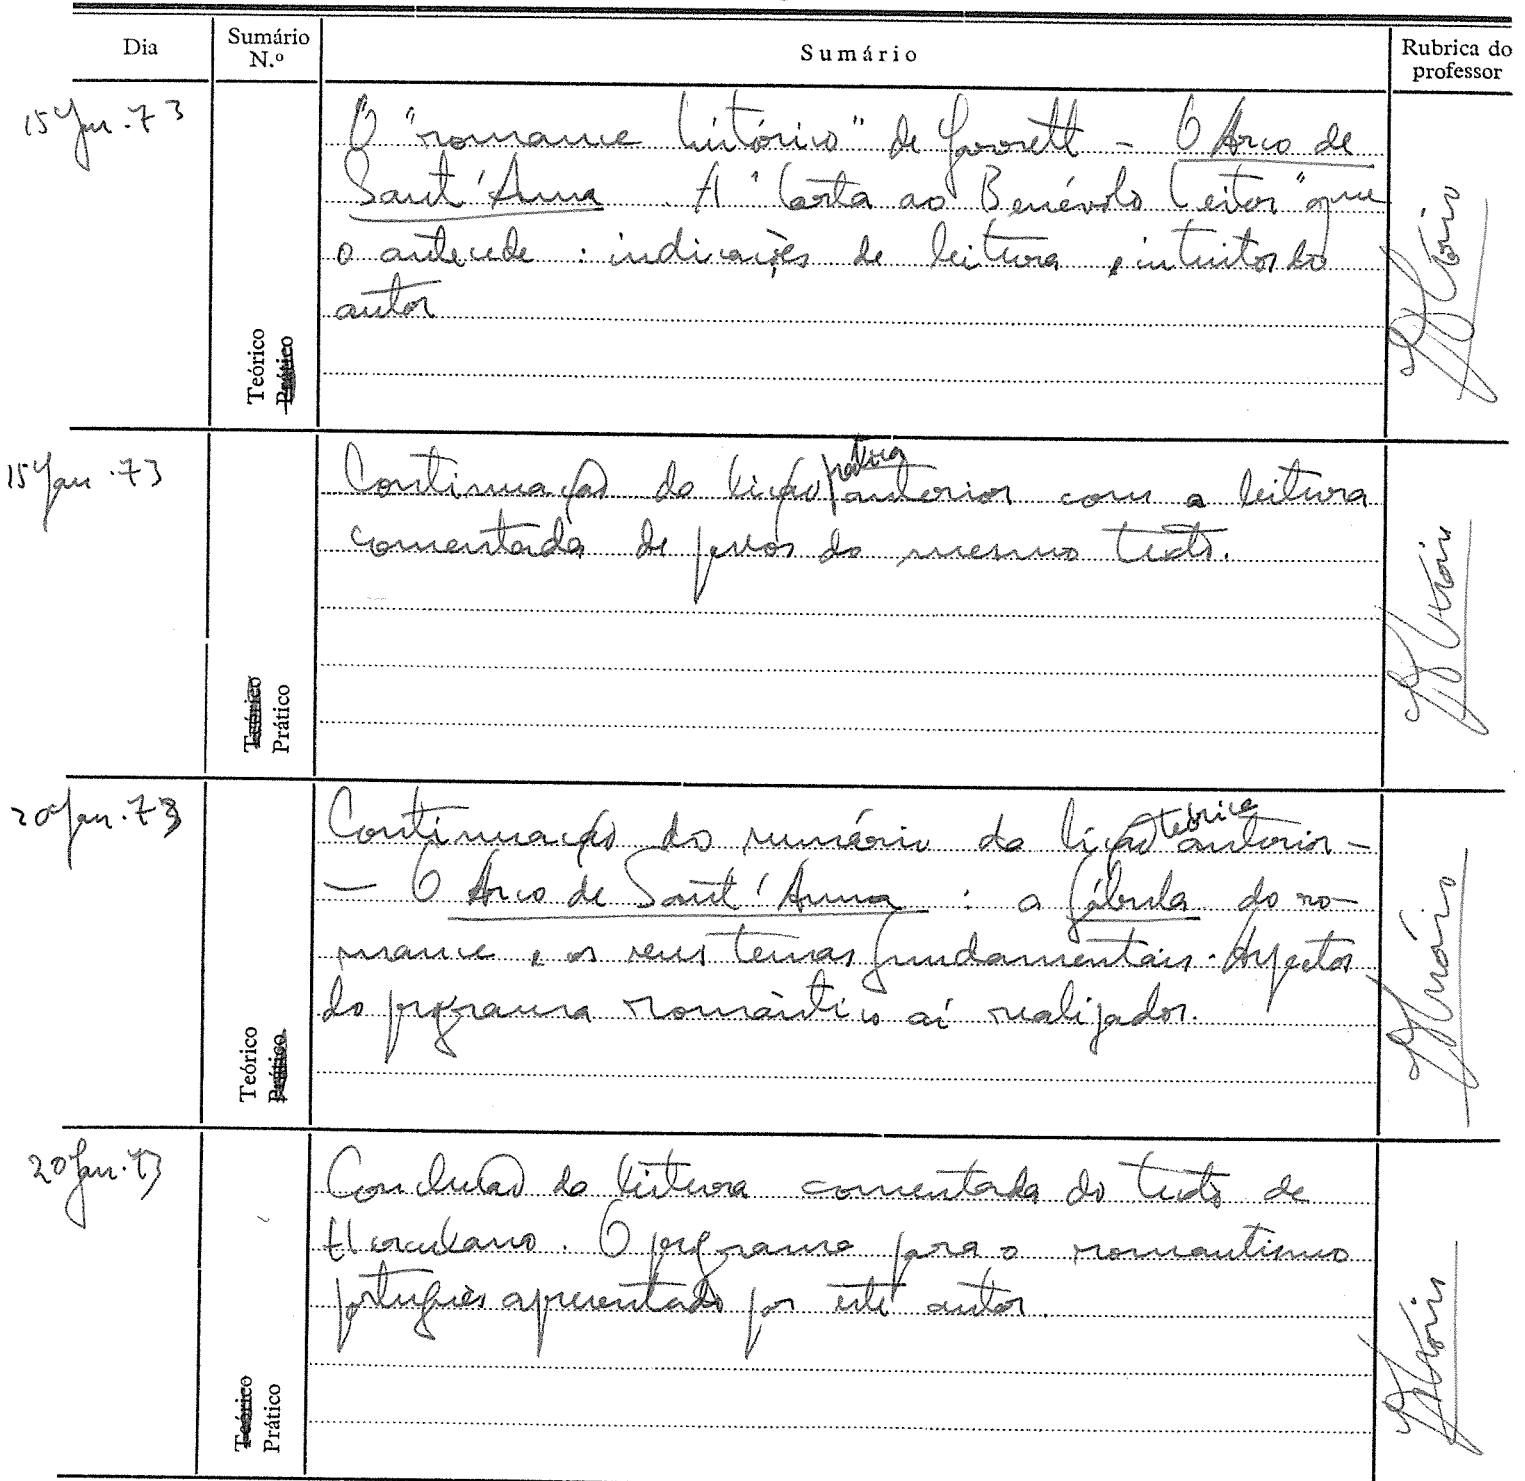 Dia
Sumário N.º
Sumário
Rubrica do professor
15 Jan. 73
O "romance histórico" de Garrett - O Arco de
Sant'Anna. A "Carta ao Benévolo Leitor" que
o antecede: indicações de leitura, intuitos do
autor
Teórico
Prático
15 Jan. 73
Continuação da lição prática anterior com a leitura
comentada de passos do mesmo texto.
Teórico
Prático
20 Jan. 73
Continuação do sumário da lição teórica anterior -
- O Arco de Sant'Anna: a fábula do ro-
mance, os seus temas fundamentais. Aspectos
do programa romântico aí realizados.
Teórico
Prático
20 Jan. 73
Conclusão da leitura comentada do texto de
Herculano. O programa para o romantismo
português apresentado por este autor.
Teórico
Prático